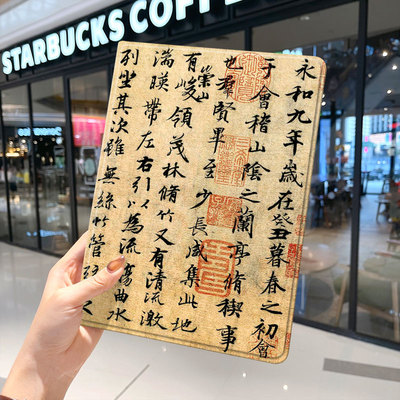 STARBUCKS COFFEE
永和九年歲在癸丑暮春之初會
于會稽山陰之蘭亭脩稧事
也羣賢畢至少長咸集此地
有崇山峻領茂林脩竹又有清流激
湍暎帶左右引以為流觴曲水
列坐其次雖無絲竹管